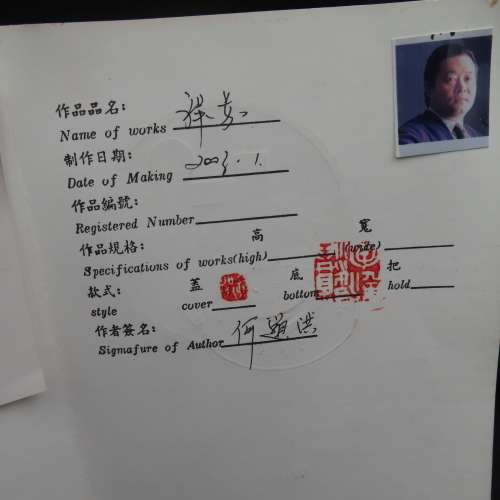 作品品名：
Name of works
制作日期：
Date of Making 2003.1.
作品編號：
Registered Number
作品規格： 高 寬
Specifications of works(high) (wide)
款式： 蓋 底 把
style cover bottom hold
作者簽名：
Sigmafure of Author 何顯洪